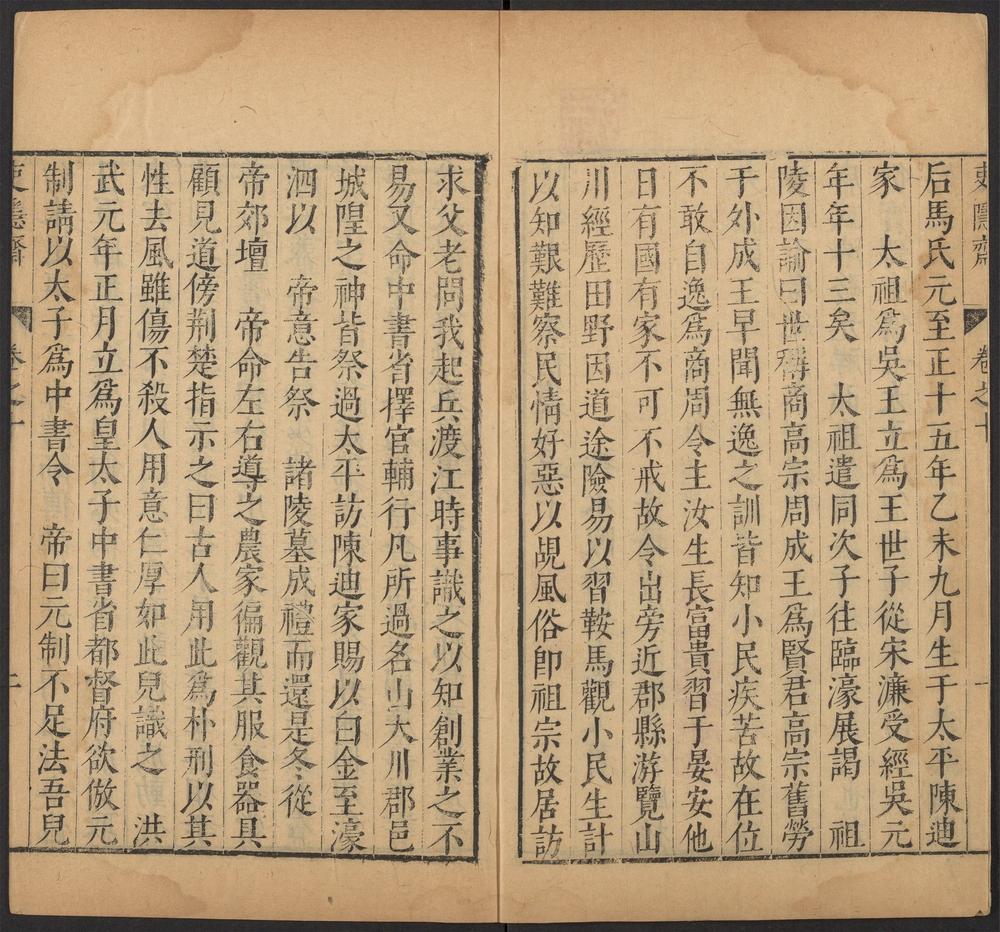 吏隱齋 卷之十 一
后馬氏元至正十五年乙未九月生于太平陳迪
家 太祖爲吳王立爲王世子從宋濂受經吳元
年年十三矣 太祖遣同次子往臨濠展謁 祖
陵因諭曰世稱商高宗周成王爲賢君高宗舊勞
于外成王早聞無逸之訓皆知小民疾苦故在位
不敢自逸爲商周令主汝生長富貴習于晏安他
日有國有家不可不戒故令出旁近郡縣游覽山
川經歷田野因道途險易以習鞍馬觀小民生計
以知艱難察民情好惡以覘風俗即祖宗故居訪
求父老問我起兵渡江時事識之以知創業之不
易又命中書省擇官輔行凡所過名山大川郡邑
城隍之神皆祭過太平訪陳迪家賜以白金至濠
泗以 帝意告祭 諸陵墓成禮而還是冬從
帝郊壇 帝命左右導之農家徧觀其服食器具
顧見道傍荆楚指示之曰古人用此爲朴刑以其
性去風雖傷不殺人用意仁厚如此兒識之 洪
武元年正月立爲皇太子中書省都督府欲倣元
制請以太子爲中書令 帝曰元制不足法吾兒
吏隱齋 卷之十 二